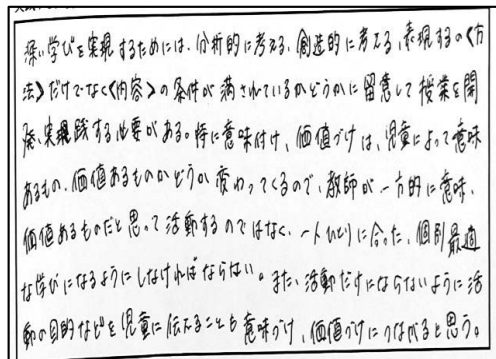 深い学びを実現するためには、分析的に考える、創造的に考える、表現するの《方
法》だけでなく《内容》の条件が満されているかどうかに留意して授業を開
発、実践する必要がある。特に意味付け、価値づけは、児童によって意味
あるもの、価値あるものかどうか変わってくるので、教師が一方的に意味、
価値あるものだと思って活動するのではなく、一人ひとりに合った、個別最適
な学びになるようにしなければならない。また、活動だけにならないように活
動の目的などを児童に伝えることも意味づけ、価値づけにつながると思う。